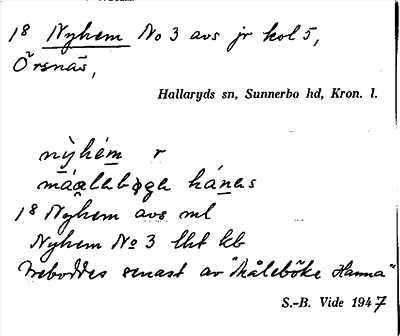 18 Nyhem No 3 avs jr kol 5,
Örsnäs,
Hallaryds sn, Sunnerbo hd, Kron. l.
nỳhém r
hánas
18 Nyhem avs ml
Nyhem No 3 lht kb
beboddes senast av "Måleböke Hanna"
S.-B. Vide 1947